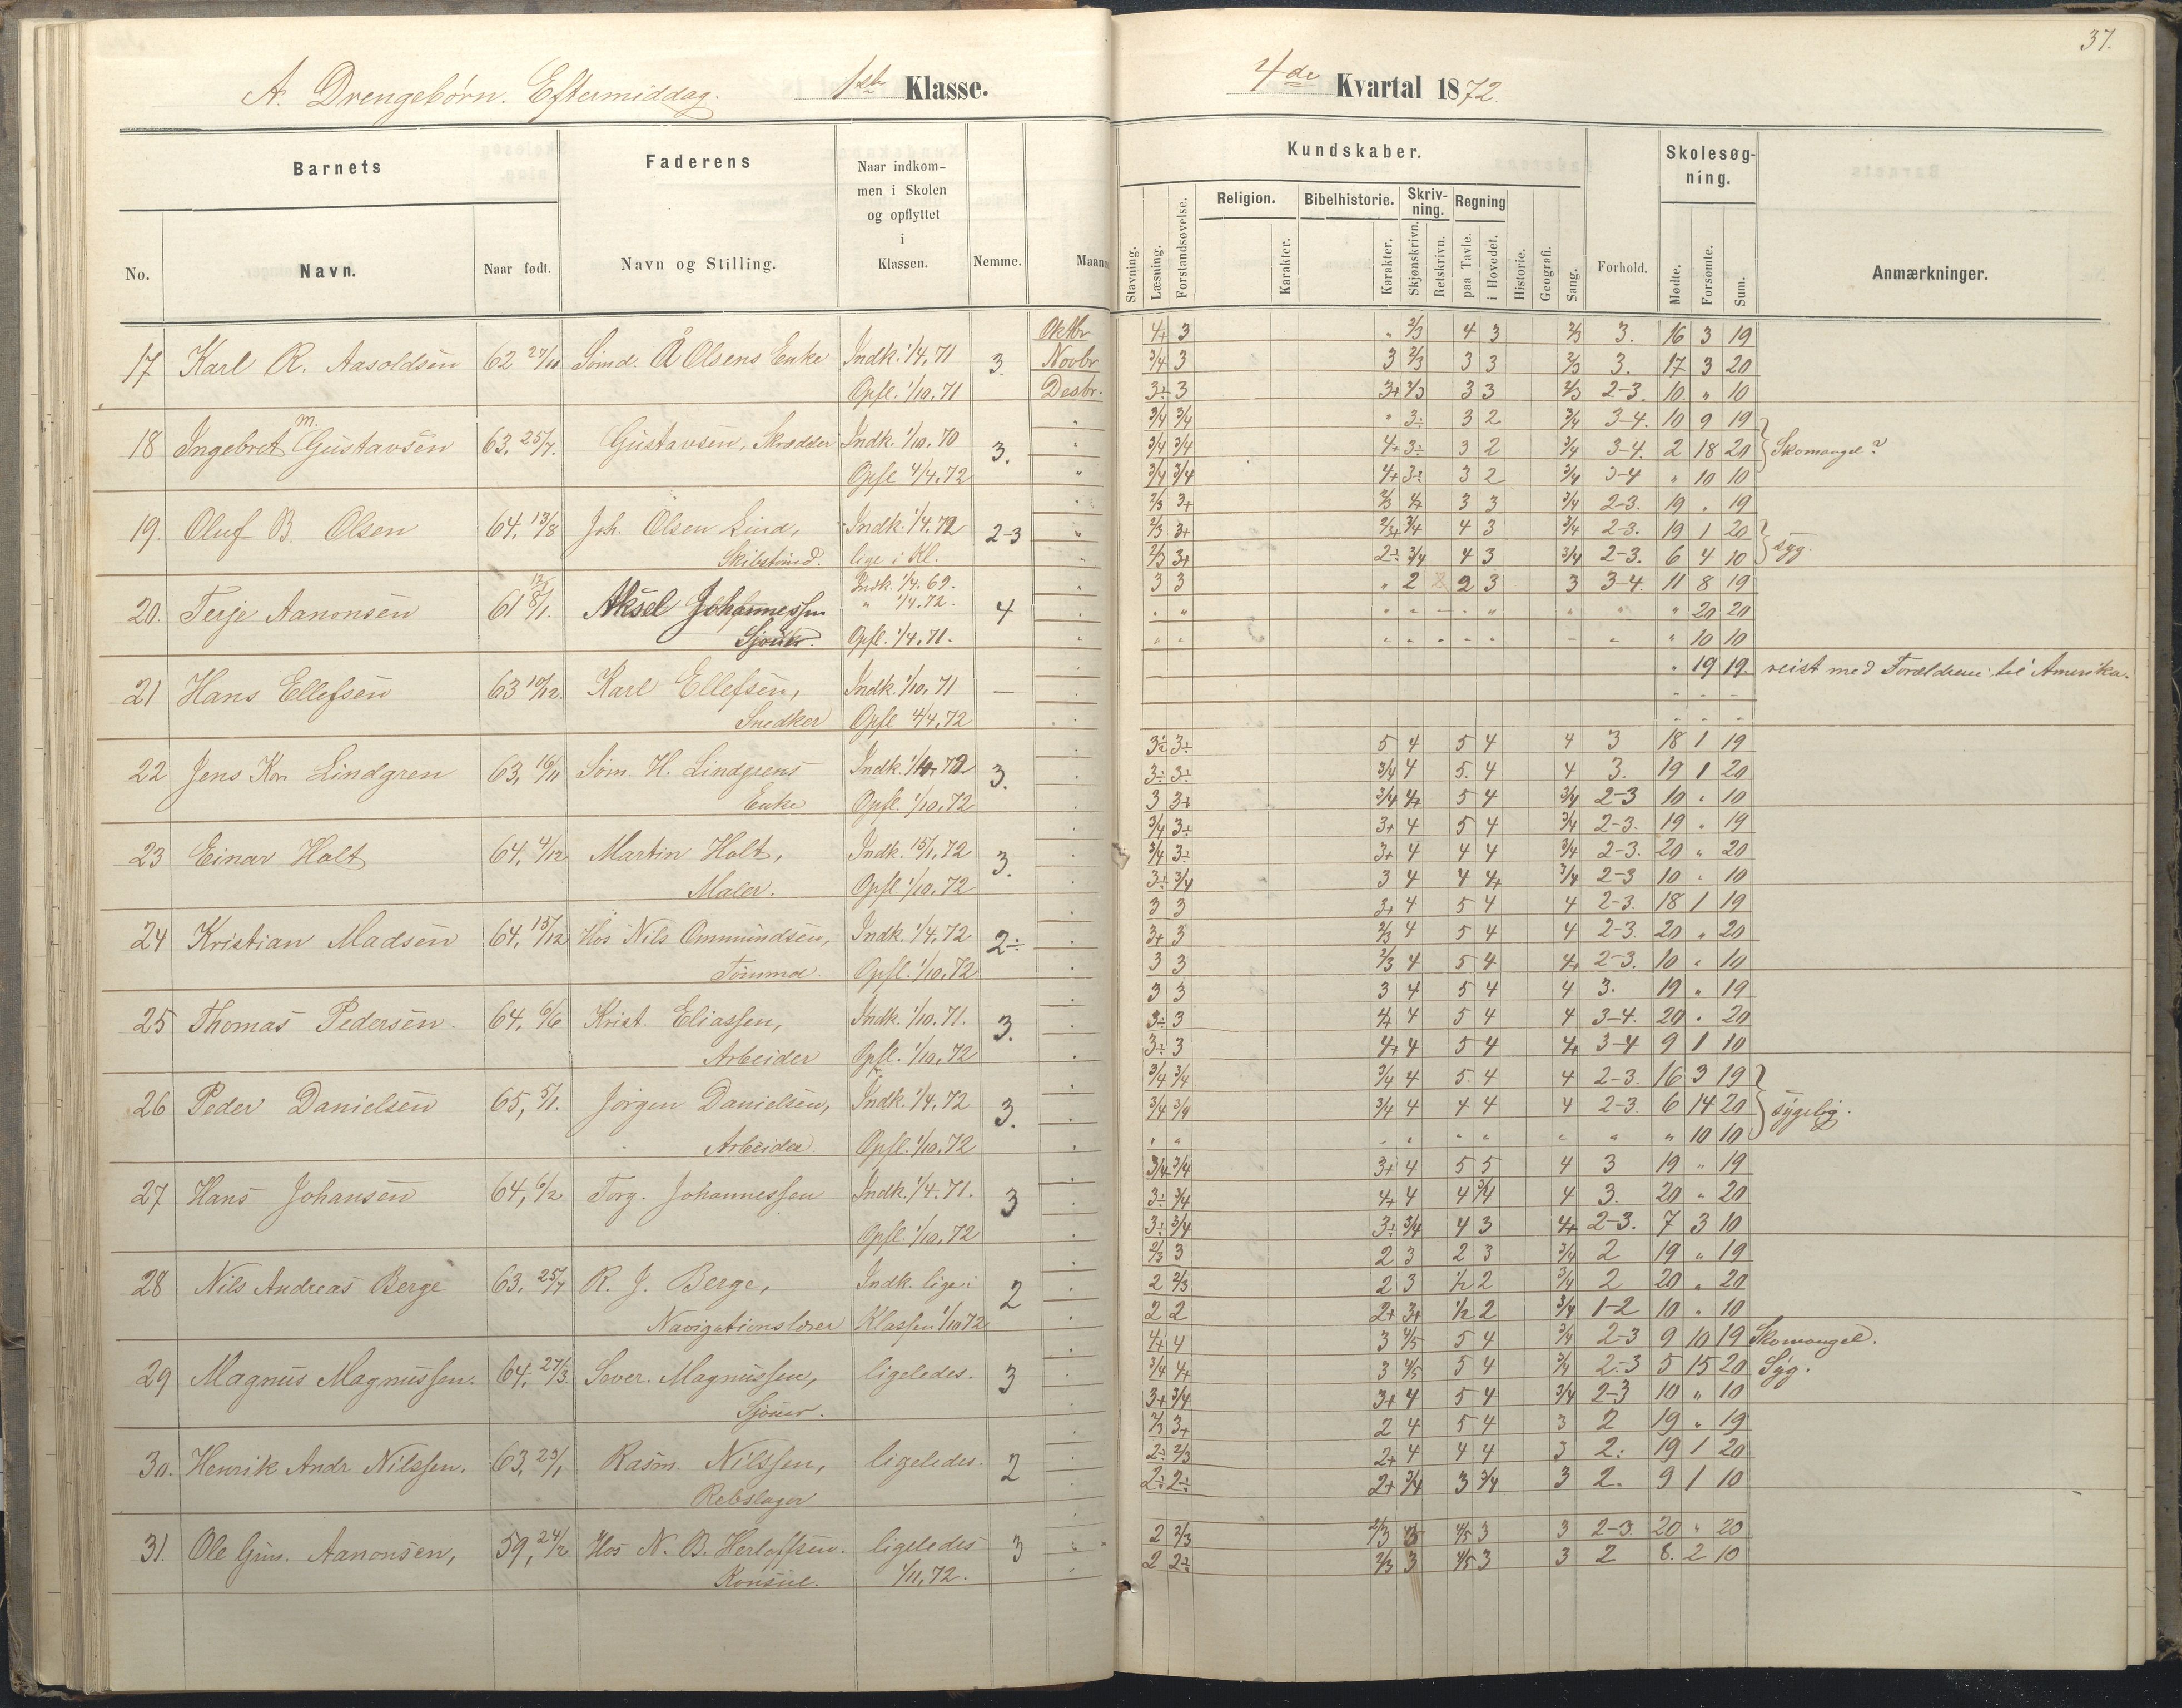 37.
A. Drengebørn. Eftermiddag. 1ste Klasse. 4de Kvartal 1872.
Barnets Faderens Naar indkom- Kundskaber. Skolesøg-
men i Skolen ning.
og opflyttet
i
No. Navn. Naar født. Navn og Stilling. Klassen. Nemme. Maaned
Stavning. Læsning. Forstandsøvelse. Religion. Karakter. Bibelhistorie. Karakter. Skriv-ning. Skjønskrivn. Retskrivn. Regning paa Tavle. i Hovedet. Historie. Geografi. Sang. Forhold. Mødte. Forsømte. Sum. Anmærkninger.
Oktbr 4+ 3 " 2/3 4 3 2/3 3. 16 3 19
17 Karl R. Aasoldsen 62 27/10 Sømd. Å Olsens Enke Indk. 1/4. 71 3. Novbr 3/4 3 3 2/3 3 3 2/3 3. 17 3 20
Opfl. 1/10. 71 Desbr. 3÷ 3 3+ 2/3 3 3 2/3 2-3. 10. " 10
" 3/4 3/4 " 3÷ 3 2 3/4 3-4. 10 9 19
18 Ingebret M. Gustavsen 63. 25/7. Gustavsen, Skrædder Indk. 1/10. 70 3. " 3/4 3/4 4+ 3÷ 3 2 3/4 3-4. 2 18 20 Skomangel?
Opfl 4/4. 72 " 3/4 3/4 4+ 3÷ 3 2 3/4 3-4 " 10 10
" 2/3 3+ 2/3 4+ 3 3 3/4 2-3. 19 " 19
19. Oluf B. Olsen 64. 13/8 Joh. Olsen Lind, Indk. 1/4. 72 2-3 " 2/3 3+ 2/3+ 3/4 4 3 3/4 2-3. 19 1 20 syg.
Skibstømd. lige i Kl. " 2/3 3+ 2÷ 3/4 4 3 3/4 2-3. 6 4 10
Indk. 1/4. 69. 3 3 " 2 2 3 3 3-4. 11 8 19
20. Terje Aanonsen 61 8/1. Aksel Johannessen " 1/4. 72. 4 " " " " " " " " " 20 20
Sjouer. Opfl. 1/4. 71. " " " " " " " " " " 10 10
" 19 19. reist med Forældrene til Amerika.
21 Hans Ellefsen 63 10/12. Karl Ellefsen, Indk. 1/10. 71 — " - - -
Snedker Opfl 4/4. 72 " - - -
3÷ 3÷ 5 4 5 4 4 3 18 1 19
22 Jens Kr. Lindgren 63, 16/11 Søm. H. Lindgrens Indk. 72 3. " 3÷ 3÷ 3/4 4 5. 4 4 3. 19 1 20
Enke Opfl. 1/10. 72 " 3 3+ 3/4 4+ 5 4 3/4 2-3 10 " 10
" 3/4 3÷ 3+ 4 5 4 3/4 2-3. 19 " 19
23 Einar Holt 64. 4/12 Martin Holt, Indk. 15/1. 72 3. " 3/4 3÷ 3+ 4 4 4 3/4 2-3. 20 " 20
Maler. Opfl. 1/10. 72 " 3÷ 3/4 3 4 4 4+ 3/4 2-3 10 " 10
" 3 3 3+ 4 5 4 4 2-3. 18 1 19
24 Kristian Madsen 64, 15/12 Hos Nils Ommundsen, Indk. 1/4. 72 2÷ " 3+ 3 2/3 4 5 4 4 2-3. 20 " 20
Tømmd. Opfl. 1/10. 72 " 3 3 2/3 4 5 4 4+ 2-3. 10 " 10
" 3 3 3 4 5 4 4 3. 19 " 19
25 Thomas Pedersen. 64, 6/6 Krist. Eliassen, Indk. 1/10. 71. 3. " 3÷ 3 4+ 4 5 4 4 3-4. 20 " 20
Arbeider Opfl. 1/10. 72 " 3÷ 3 4+ 4 5 4 4+ 3-4 9 1 10
" 3/4 3/4 3/4 4 5. 4 4 2-3. 16 3 19
26 Peder Danielsen 65, 5/1. Jørgen Danielsen, Indk. 1/4. 72 3. " 3/4 3/4 3/4 4 4 4 4 2-3. 6 14 20 sygelig.
Arbeider. Opfl. 1/10. 72 " " " " " " " " " " 10 10
" 3/4 3/4 3+ 4 5 5 4 3 19 " 19
27 Hans Johansen 64, 6/2 Torg. Johannessen Indk. 1/4. 71. 3 " 3÷ 3/4 4+ 4 4 3/4 4 3. 20 " 20
Opfl. 1/10. 72 " 3÷ 3/4 3÷ 3/4 4 3 4+ 2-3. 7 3 10
" 2/3 3 2 3 2 3 3/4 2 19 " 19
28 Nils Andreas Berge 63, 25/7 R. J. Berge, Indk. lige i 2 " 2 2/3 2 3 1/2 2 3/4 2 20 " 20
Navigationslærer Klassen 1/10 72 " 2 2 2+ 3+ 1/2 2 3/4 1-2 10 " 10
" 4+ 4 3 4/5 5 4 3/4 2-3 9 10 19 Skomangel.
29 Magnus Magnussen. 64, 27/3. Sever. Magnussen, ligeledes. 3 " 3/4 4+ 3 4/5 5 4 3/4 2-3 5 15 20 Syg.
Sjouer. " 3+ 3/4 3+ 4 5 4 3/4 2-3 10 " 10
" 2/3 3+ 2 4 5 4 3 2 19 " 19
30. Henrik Andr Nilssen. 63, 23/1 Rasm. Nilssen, ligeledes. 2 " 2÷ 2/3 2+ 4 4 4 3 2. 19 1 20
Rebslager " 2÷ 2÷ 2+ 3/4 3 3/4 3 2. 9 1 10
31. Ole Gun. Aanonsen, 59, 24/2 Hos N. B. Herlofsen. ligeledes 3 " 2 2/3 2/3 3 4/5 3 3 2-3. 20 " 20
Konsul. 1/11. 72. " 2 2÷ 2/3 3 4/5 3 3 2 8. 2 10